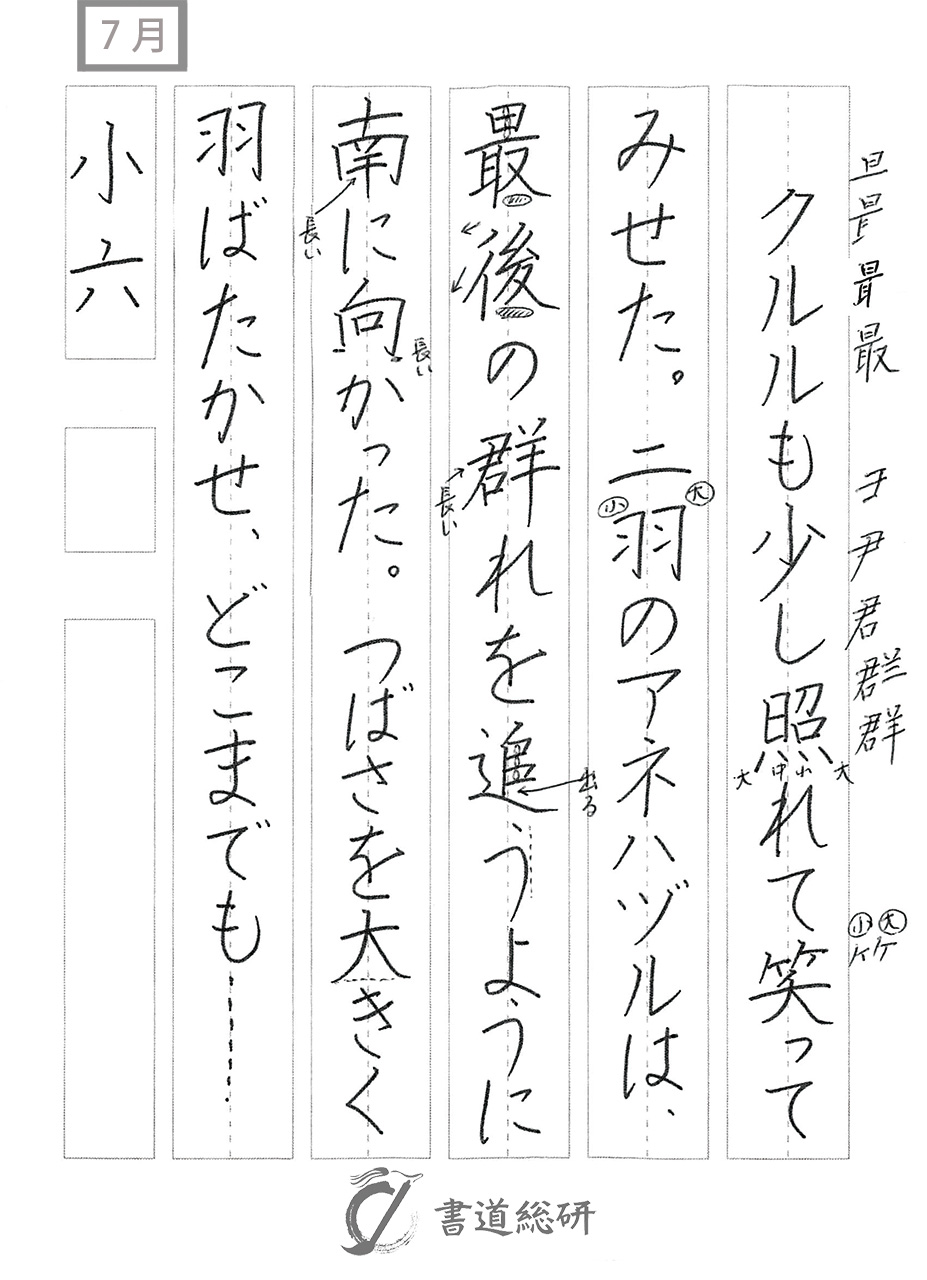 7月
旦 昻 冐 最 ヨ 尹 君 群 群
小 大
ケケ
クルルも少し照れて笑って
大 中 小 大
みせた。二羽のアネハヅルは、
小 大
最後の群れを追うように
長い
出る
南に向かった。つばさを大きく
長い
長い
羽ばたかせ、どこまでも……
小六
書道総研